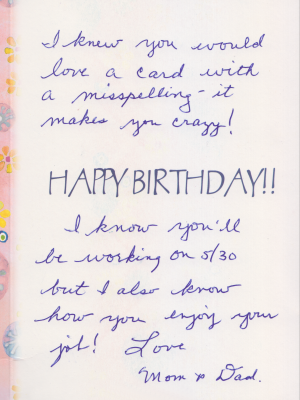 I knew you would
love a card with
a misspelling - it
makes you crazy!
HAPPY BIRTHDAY!!
I know you'll
be working on 5/30
but I also know
how you enjoy your
job! Love
Mom & Dad.